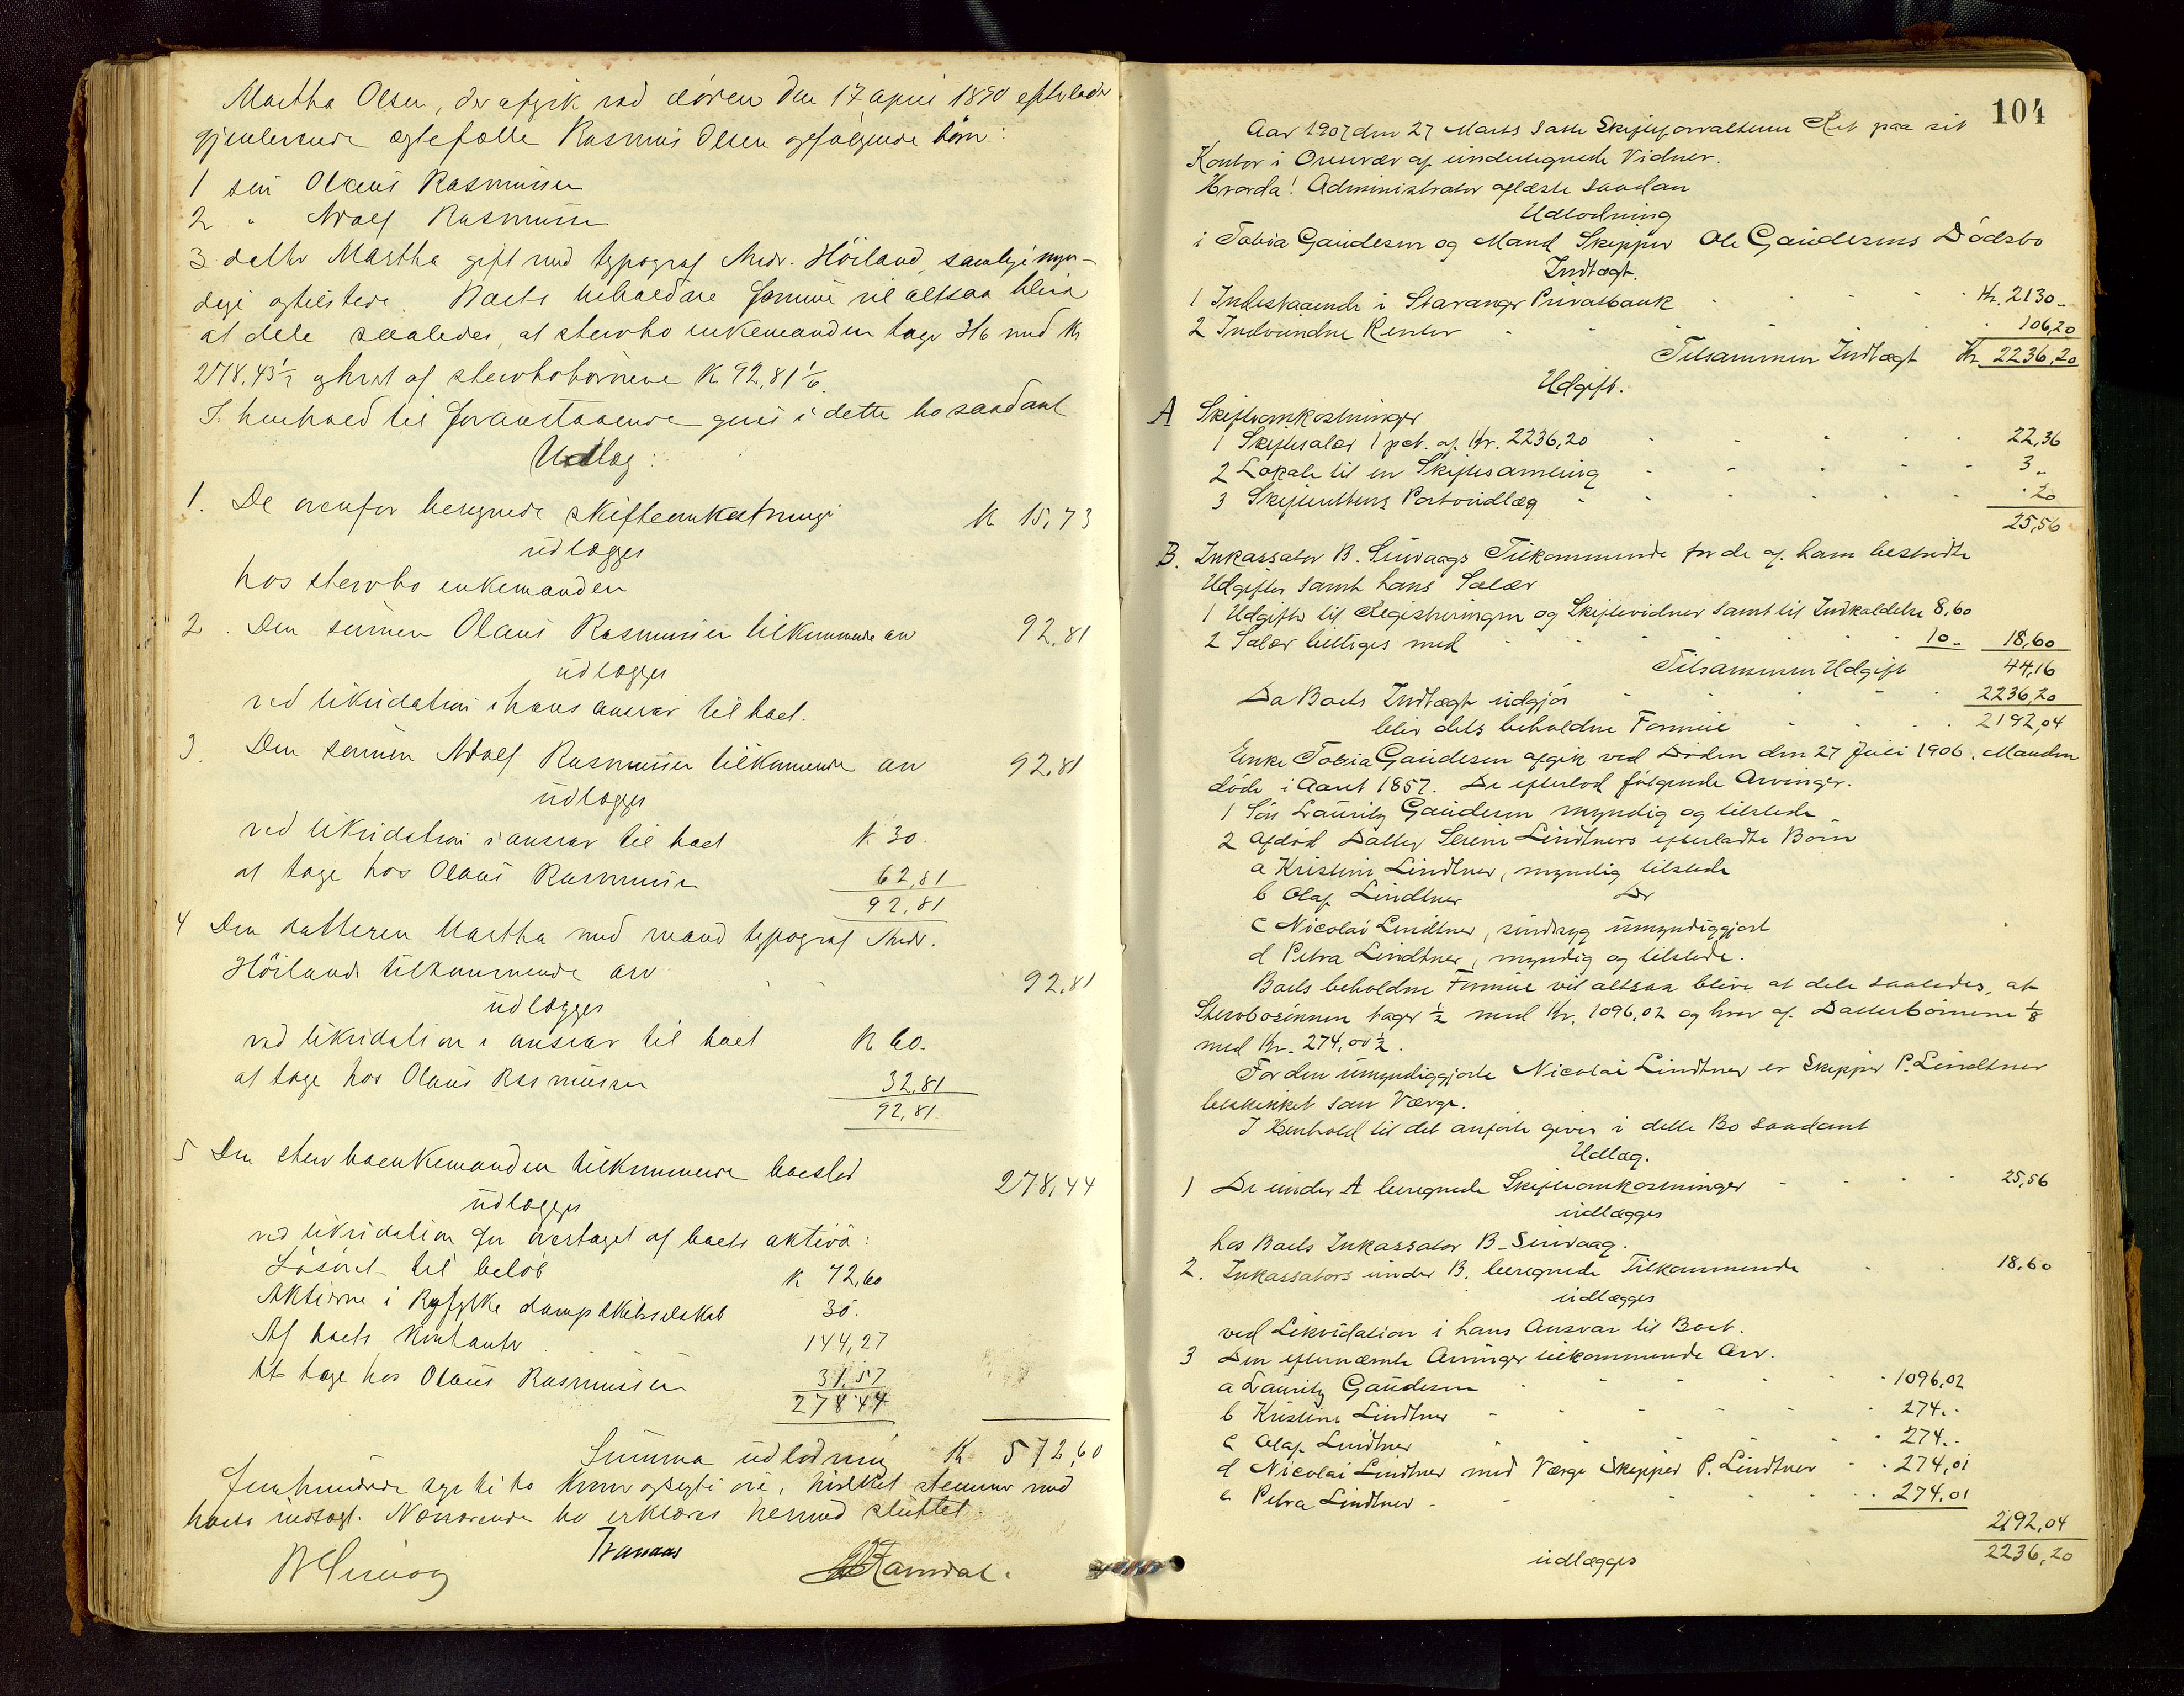 Martha Olsen, der afgik ved døden den 17 april 1890 efterlod
gjenlevende ægtefælle Rasmus Olsen og følgende børn:
1 søn Olaus Rasmussen
2 " Adolf Rasmussen
3 datter Martha gift med typograf Andr. Höiland, samtlige myn-
dige og tilstede. Boets beholdne formue vil altsaa blive
at dele saaledes, at stervbo enkemanden tager 3/6 med Kr
278,43 1/2 og hver af stervbobørnene Kr 92,81 1/6.
I henhold til foranstaaende gives i dette bo saadant
Udlæg:
1. De ovenfor beregnede skifteomkostninger K 15,73
udlægges
hos stervbo enkemanden
2. Den sønnen Olaus Rasmussen tilkommende arv 92,81
udlægges
ved likvidation i hans ansvar til boet.
3. Den sønnen Adolf Rasmussen tilkommende arv 92,81
udlægges
ved likvidation i ansvar til boet K 30.
at tage hos Olaus Rasmussen 62,81
92,81
4 Den datteren Martha med mand typograf Andr.
Höilands tilkommende arv 92,81
udlægges
ved likvidation i ansvar til boet K 60.
at tage hos Olaus Rasmussen 32,81
92,81
5 Den stervboenkemanden tilkommende boeslod 278,44
udlægges
ved likvidation for overtaget af boets aktiva:
Løsøret til beløb K 72,60
Aktierne i Ryfylke dampskibsselskab 30.
Af boets kontanter 144,27
At tage hos Olaus Rasmussen 31,57
278 44
Summa udlodning K 572,60
femhundrede sytti to kroner og sexti øre, hvilket stemmer med
boets indtægt. Nærværende bo erklæres hermed sluttet.
104
Aar 1907 den 27 Marts satte Skifteforvalteren Ret paa sit
Kontor i overvær af undertegnede Vidner.
Hvorda! Administrator oplæste saadan
Udlodning
i Tobia Gaudesen og Mand Skipper Ole Gaudesens Dödsbo
Indtægt.
1 Indestaaende i Stavanger Privatbank Kr. 2130 -
2 Indvundne Renter 106,20
Tilsammen Indtægt Kr. 2236,20
Udgift.
A Skifteomkostninger
1 Skiftesalær 1 pct. af Kr. 2236,20 22,36
2 Lokale til en Skiftesamling 3 -
3 Skifterettens Portoudlæg . 20
25,56
B. Inkassator B. Sunvaags Tilkommende for de af ham bestridte
Udgifter samt hans Salær
1 Udgifter til Registreringen og Skiftevidner samt til Indkaldelse 8,60
2 Salær billiges med 10 - 18,60
Tilsammen Udgift 44,16
Da Boets Indtægt udgjör 2236,20
blir dets beholdne Formue 2192,04
Enke Tobia Gaudesen afgik ved Döden den 27 Juli 1906. Manden
döde i Aaret 1857. De efterlod fölgende Arvinger.
1 Sön Lauritz Gaudesen myndig og tilstede
2 afdöd Datter Serine Lindtners efterladte Börn
a Kristine Lindtner, myndig tilstede
b Olaf Lindtner Do
c Nicolai Lindtner, sindssyg umyndiggjort
d Petra Lindtner, myndig og tilstede.
Boets beholdne Formue vil altsaa blive at dele saaledes, at
Stervbosönnen tager 1/2 med Kr. 1096,02 og hver af Datterbörnene 1/8
med Kr. 274,00 1/2.
For den umyndiggjorte Nicolai Lindtner er Skipper P. Lindtner
beskikket som Værge.
I Henhold til det anförte gives i dette Bo saadant
Udlæg.
1 De under A beregnede Skifteomkostninger 25,56
udlægges
hos Boets Inkassator B. Sunvaag.
2. Inkassators under B. beregnede Tilkommende 18,60
udlægges
ved Likvidation i hans Ansvar til Boet.
3 Den efternævnte Arvinger tilkommende Arv.
a Lauritz Gaudesen 1096,02
b Kristine Lindtner 274. -
c Olaf Lindtner 274. -
d Nicolai Lindtner med Værge Skipper P. Lindtner 274,01
e Petra Lindtner 274,01
2192,04
udlægges 2236,20